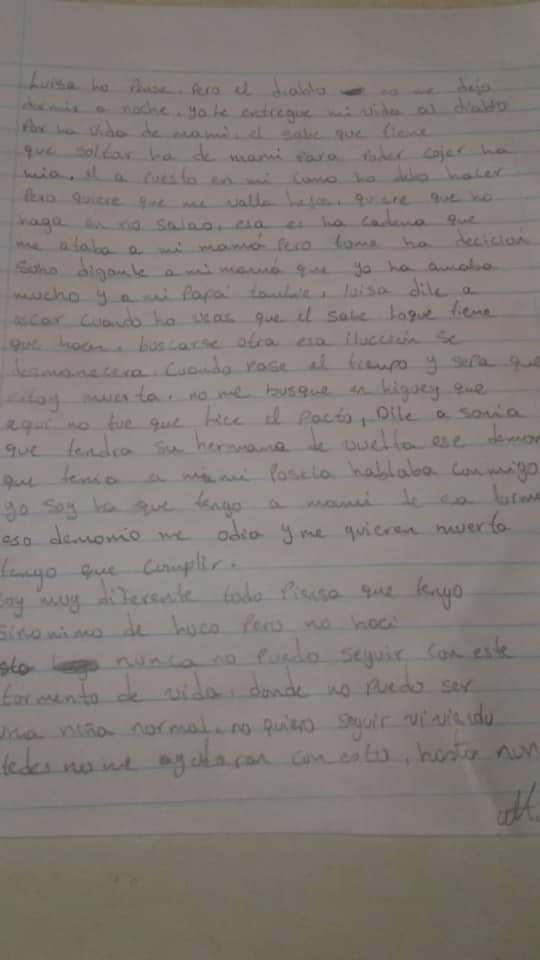 Luisa ho Pense. Pero el diablo no me dejo
dormir a noche. ya le entregue mi vida al diablo
Por ha vida de mami. el sabe que tiene
que soltar ha de mami Para Poder cojer ha
mia. el a cuesto en mi como ho debo hacer
Pero quiere que me valla hejos, quiere que ho
haga en no salao, esa es ha cadena que
me ataba a mi mamá Pero tome ha decicion
Solo diganle a mi mamá que yo ha amaba
mucho y a mi Papá tambie, luisa dile a
oscar cuando ho veas que el sabe loque tiene
que hacer. buscarse otra esa iluccion se
desmanecera. Cuando Pase el tiempo y sepa que
estoy muerta. no me busque en higuey que
aqui no fue que hice el Pacto, Dile a sonia
que tendra su hermana de vuelta ese demon
que tenia a mami Poseia hablaba conmigo
yo soy ha que tengo a mami de esa forma
eso demonio me odia y me quieren muerta
tengo que cumplir.
soy muy diferente todo Piensa que tengo
sinonimo de hoca Pero no hoci
nunca no Puedo seguir con este
tormento de vida. donde no Puedo ser
una niña normal. no quiero seguir viviendo
tedes no me ayudaran con esto, hasta nun